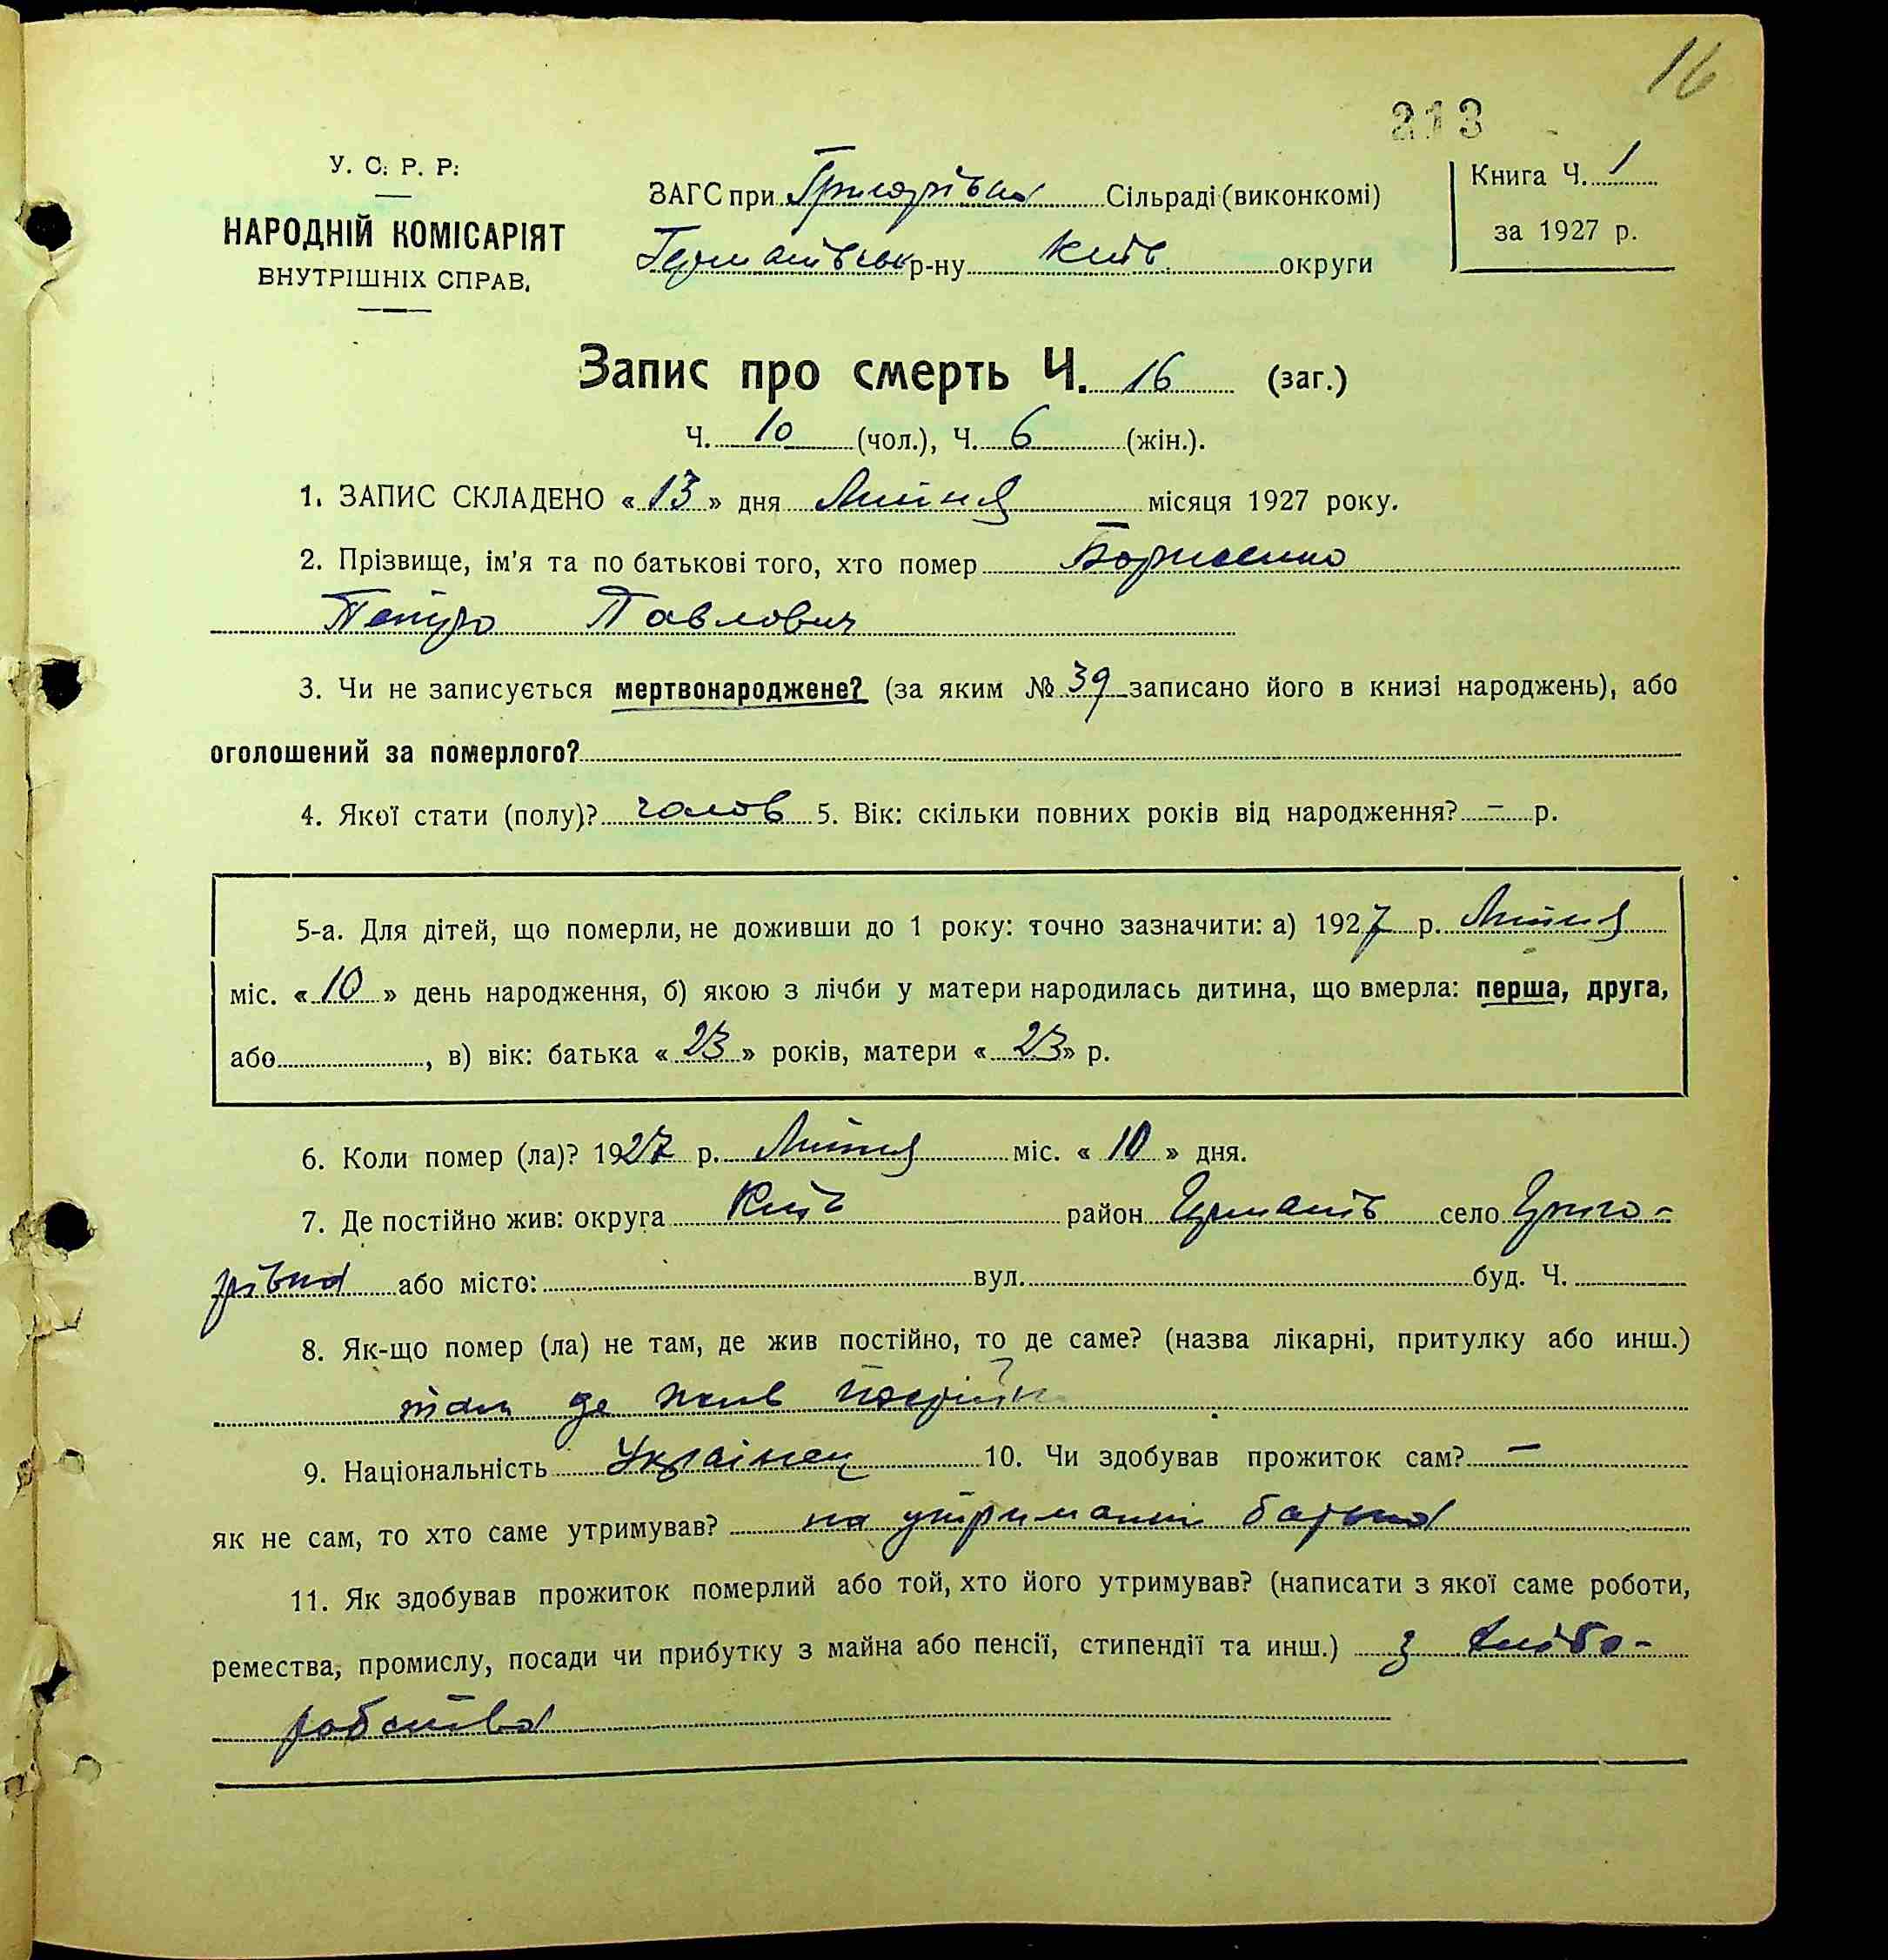 16
213
У. С. Р. Р.
НАРОДНІЙ КОМІСАРІЯТ
ВНУТРІШНІХ СПРАВ.
ЗАГС при Григорівка Сільраді (виконкомі)
Германівськ р-ну Київ. округи
Книга Ч. 1
за 1927 р.
Запис про смерть Ч. 16 (заг.)
Ч. 10 (чол.), Ч. 6 (жін.).
1. ЗАПИС СКЛАДЕНО « 13 » дня Липня місяця 1927 року.
2. Прізвище, ім'я та по батькові того, хто помер Борисенко
Петро Павлович
3. Чи не записується мертвонароджене? (за яким № 39 записано його в книзі народжень), або
оголошений за померлого?
4. Якої стати (полу)? чолов 5. Вік: скільки повних років від народження? – р.
5-а. Для дітей, що померли, не доживши до 1 року: точно зазначити: а) 1927 р. Липня
міс. « 10 » день народження, б) якою з лічби у матери народилась дитина, що вмерла: перша, друга,
або , в) вік: батька « 23 » років, матери « 23 » р.
6. Коли помер (ла)? 1927 р. Липня міс. « 10 » дня.
7. Де постійно жив: округа Київ район Германів село Григо-
рівка або місто: вул. буд. Ч.
8. Як-що помер (ла) не там, де жив постійно, то де саме? (назва лікарні, притулку або инш.)
там де жив постійн
9. Національність Українец 10. Чи здобував прожиток сам? –
як не сам, то хто саме утримував? на утриманні батька
11. Як здобував прожиток померлий або той, хто його утримував? (написати з якої саме роботи,
ремества, промислу, посади чи прибутку з майна або пенсії, стипендії та инш.) з хлібо-
робства